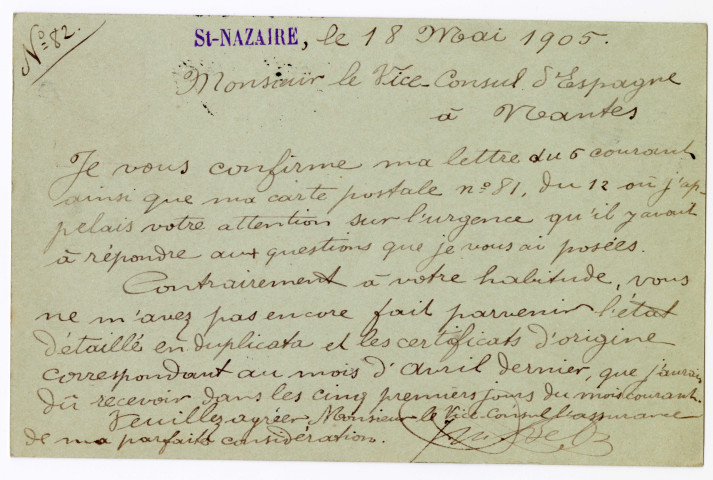 Nº 82.
St-NAZAIRE, le 18 Mai 1905.
Monsieur le Vice-Consul d'Espagne
à Nantes
Je vous confirme ma lettre du 6 courant
ainsi que ma carte postale nº 81, du 12 où j'ap-
pelais votre attention sur l'urgence qu'il y avait
à répondre aux questions que je vous ai posées.
Contrairement à votre habitude, vous
ne m'avez pas encore fait parvenir l'état
détaillé en duplicata et les certificats d'origine
correspondant au mois d'Avril dernier, que j'aurais
dû recevoir dans les cinq premiers jours du mois courant.
Veuillez agréer Monsieur le Vice-Consul l'assurance
de ma parfaite considération.